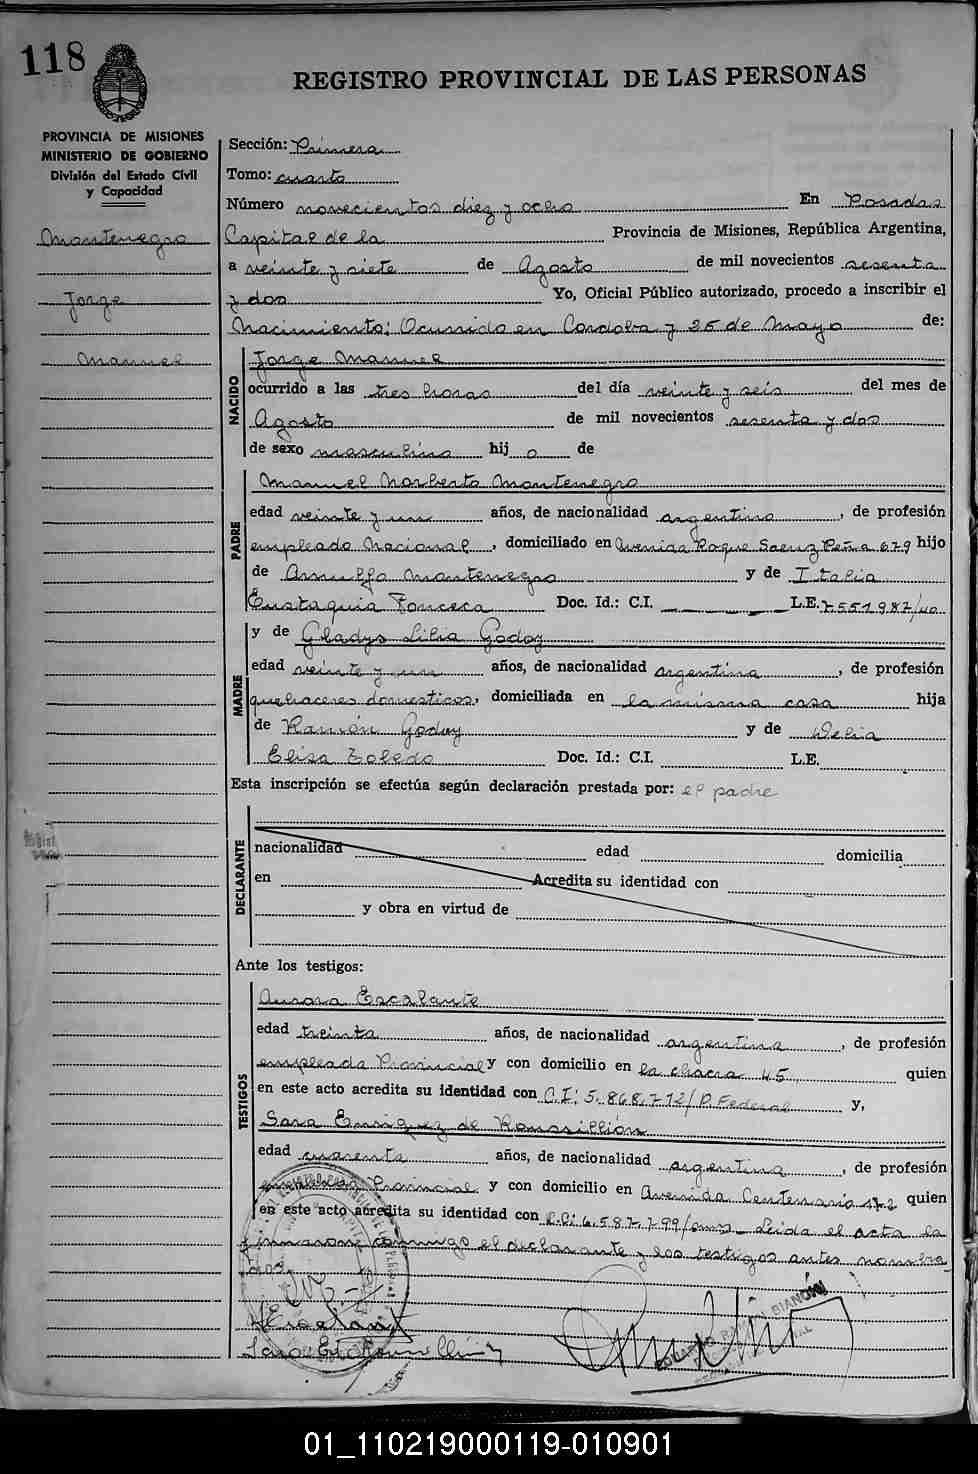 118
REGISTRO PROVINCIAL DE LAS PERSONAS
PROVINCIA DE MISIONES
MINISTERIO DE GOBIERNO
División del Estado Civil
y Capacidad
Montenegro
Jorge
Manuel
Sección: Primera
Tomo: cuarto
Número novecientos diez y ocho En Posadas
Capital de la Provincia de Misiones, República Argentina,
a veinte y siete de Agosto de mil novecientos sesenta
y dos Yo, Oficial Público autorizado, procedo a inscribir el
Nacimiento: Ocurrido en Cordoba y 25 de Mayo de:
NACIDO
Jorge Manuel
ocurrido a las tres horas del día veinte y seis del mes de
Agosto de mil novecientos sesenta y dos
de sexo masculino hij o de
PADRE
Manuel Norberto Montenegro
edad veinte y un años, de nacionalidad argentino, de profesión
empleado Nacional, domiciliado en Avenida Roque Saenz Peña 679 hijo
de Arnulfo Montenegro y de Italia
Eustaquia Fonceca Doc. Id.: C.I. L.E. 7551987/40
MADRE
y de Gladys Lilia Godoy
edad veinte y un años, de nacionalidad argentina, de profesión
quehaceres domesticos, domiciliada en la misma casa hija
de Ramón Godoy y de Delia
Elisa Toledo Doc. Id.: C.I. L.E.
Esta inscripción se efectúa según declaración prestada por: el padre
DECLARANTE
nacionalidad edad domicilia
en Acredita su identidad con
y obra en virtud de
Ante los testigos:
TESTIGOS
Aurora Escalante
edad treinta años, de nacionalidad argentina, de profesión
empleada Provincial y con domicilio en la chacra 45, quien
en este acto acredita su identidad con C.I: 5.868.712/P. Federal y,
Sara Enriquez de Roussillión
edad cuarenta años, de nacionalidad argentina, de profesión
empleada Provincial y con domicilio en Avenida Centenario 172 quien
en este acto acredita su identidad con 6.587.799 Leida el acta la
firmaron conmigo el declarante y los testigos antes nombra
dos.
Escalante
01_110219000119-010901